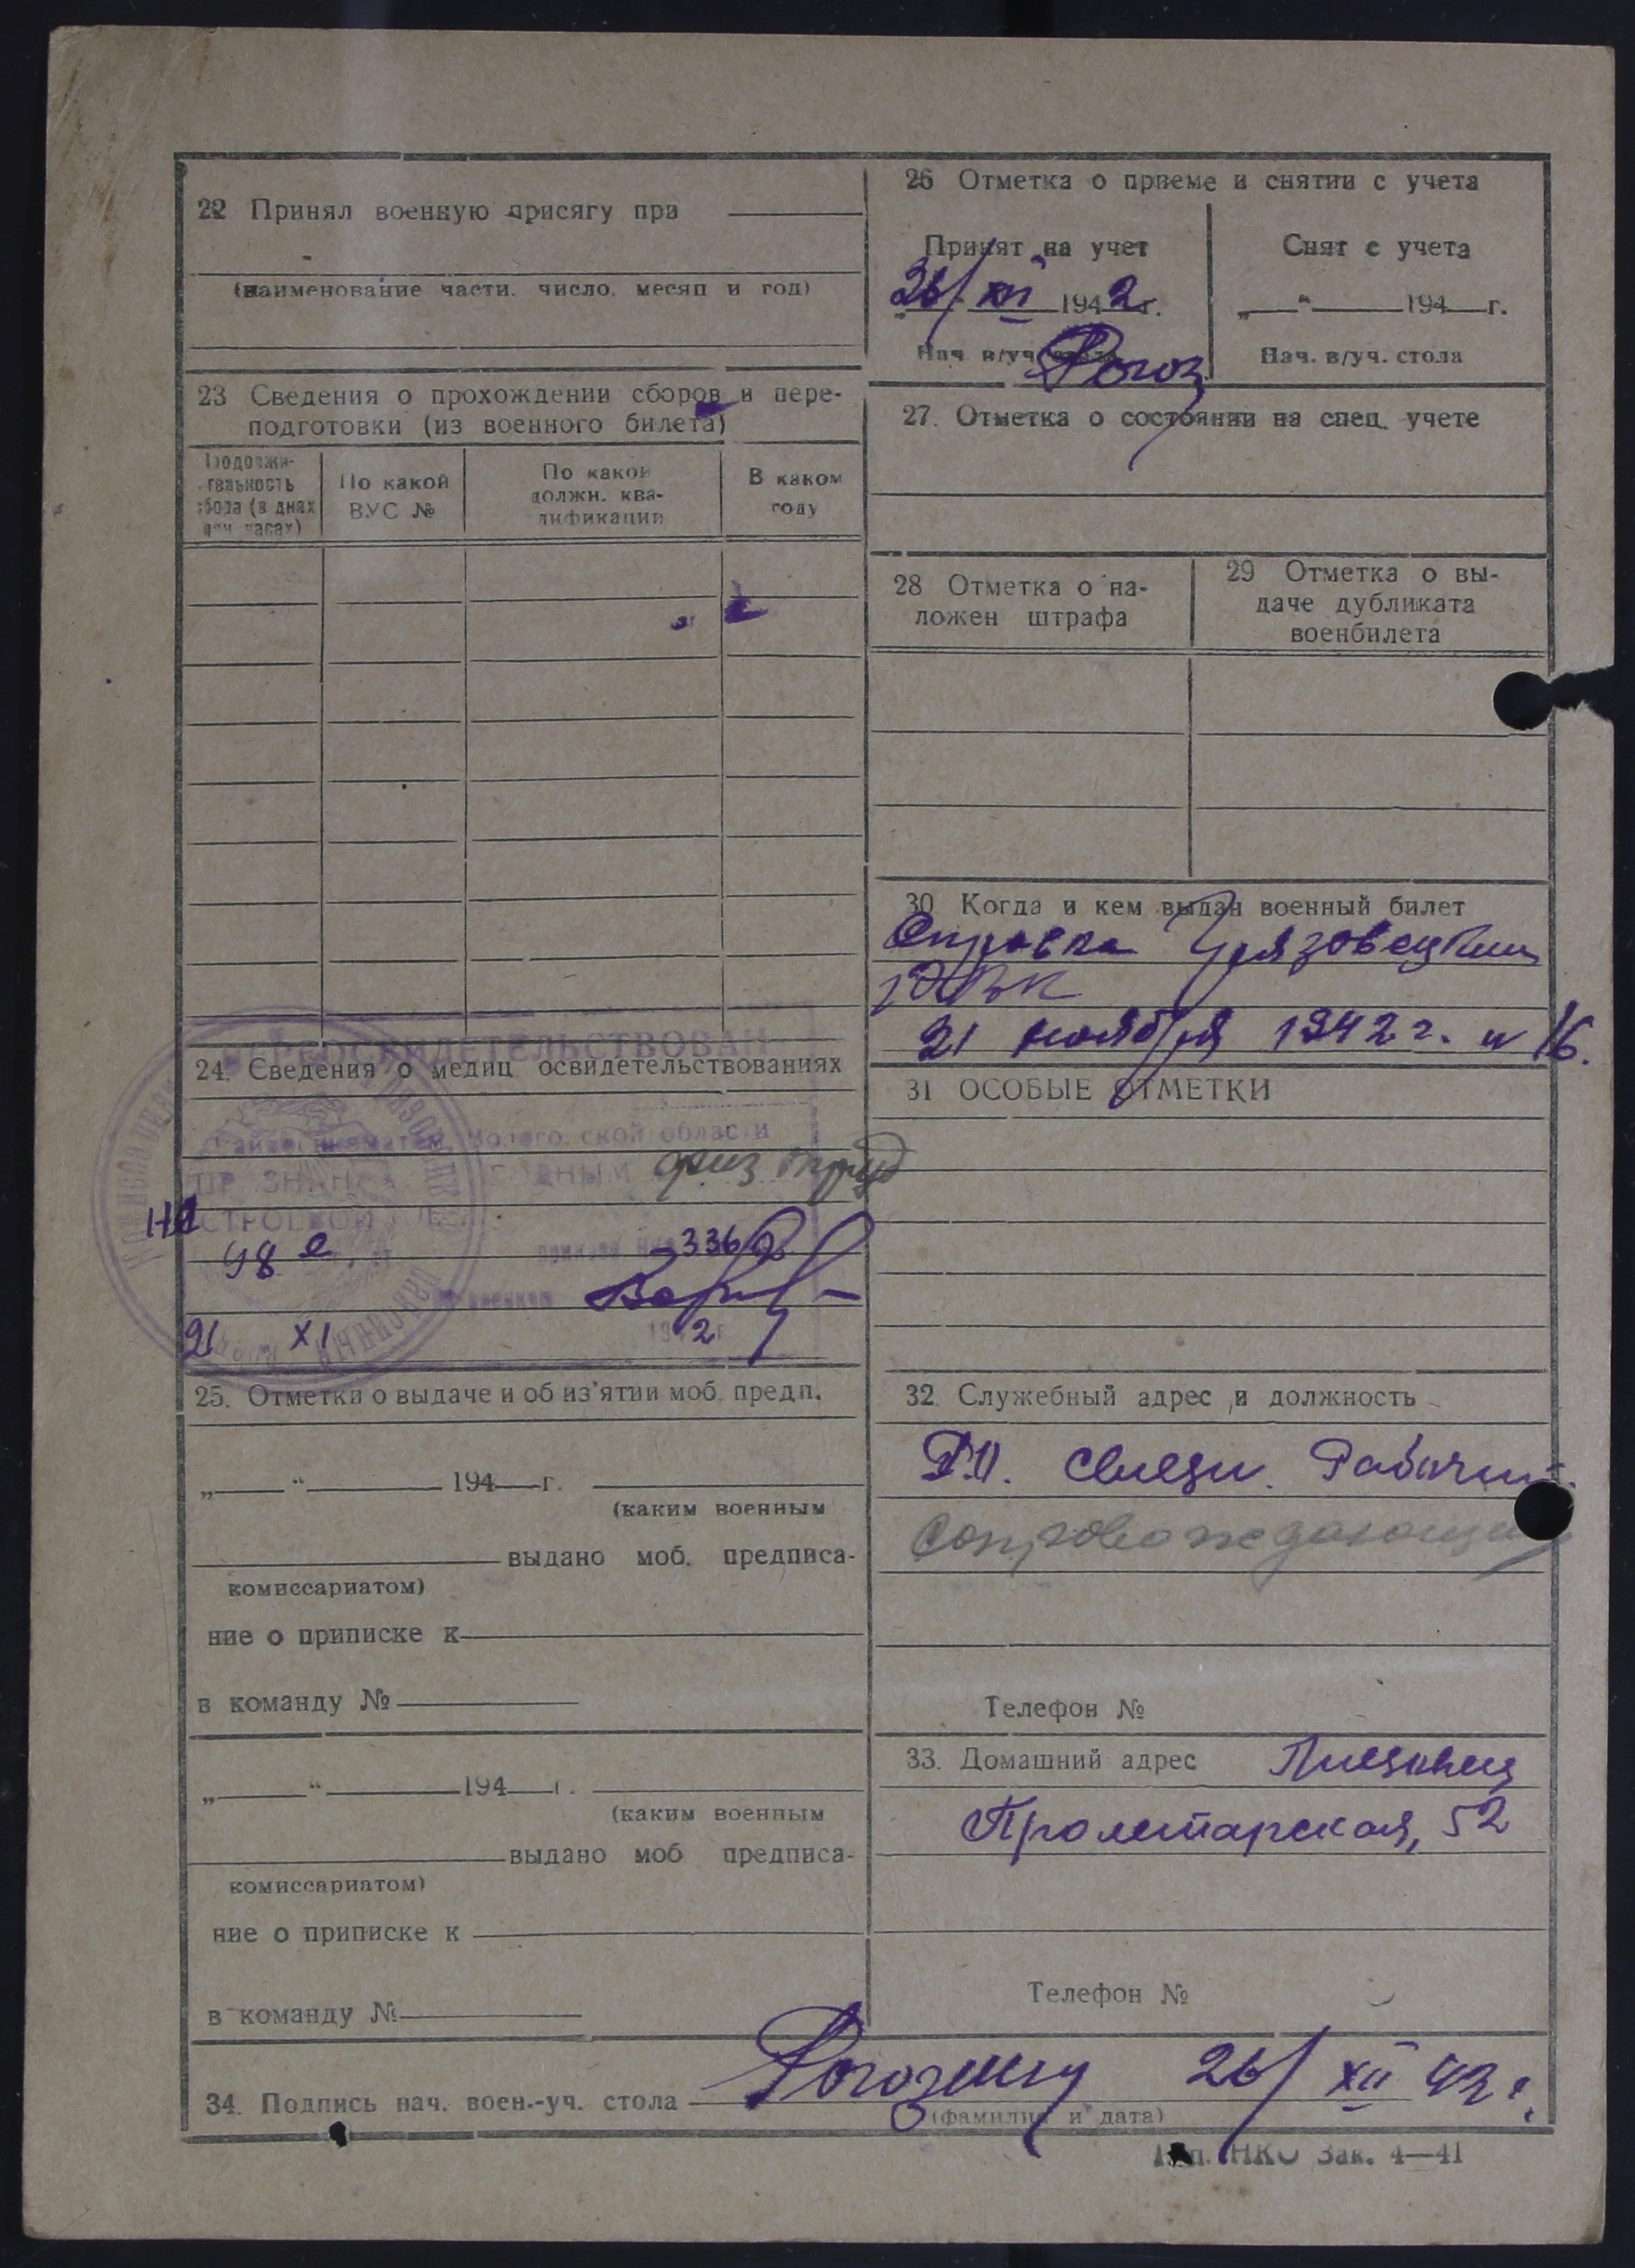 22 Принял военную присягу при
(наименование части, число, месяц и год)
23 Сведения о прохождении сборов и пере-
подготовки (из военного билета)
Продолжи-
тельность
сбора (в днах
или часах)
По какой
ВУС №
По какой
должн. ква-
лификации
В каком
году
ПЕРЕОСВИДЕТЕЛЬСТВОВАН
24. Сведения о медиц освидетельствованиях
Райвоенкоматом, Волого ской области
ПР ЗНАН ГОДНЫМ физ труд
СТРОЕВОЙ
98 е 336
21 XI 2 г
25. Отметки о выдаче и об из'ятии моб. предп.
„ “ 194 г.
(каким военным
выдано моб. предписа-
комиссариатом)
ние о приписке к
в команду №
„ “ 194 г.
(каким военным
выдано моб предписа-
комиссариатом)
ние о приписке к
в команду №
26 Отметка о приеме и снятии с учета
Принят на учет
26/XII 1942 г.
Нач в/уч стола Рогоз
Снят с учета
„ “ 194 г.
Нач. в/уч. стола
27. Отметка о состоянии на спец. учете
28 Отметка о на-
ложен штрафа
29 Отметка о вы-
даче дубликата
военбилета
30 Когда и кем выдан военный билет
Справка Грязовецким
РВК
21 ноября 1942 г. № 16.
31 ОСОБЫЕ ОТМЕТКИ
32 Служебный адрес и должность
Р.О. связи. Рабочий.
Сопровождающий
Телефон №
33. Домашний адрес
Пролетарская, 52
Телефон №
34. Подпись нач. воен.-уч. стола 26/XII 42 г.
(фамилия и дата)
Тип. НКО Зак. 4—41